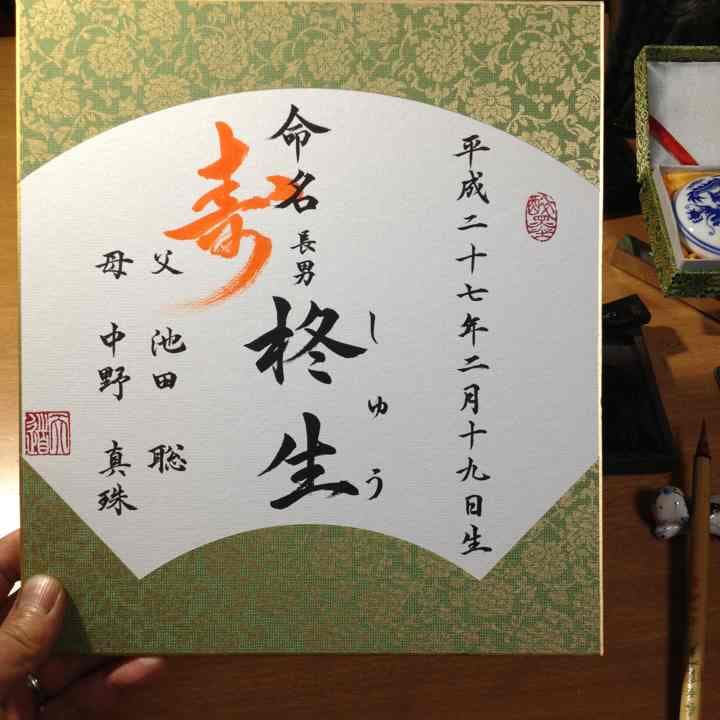 平成二十七年二月十九日生
命名 長男 柊生
しゅう
寿
父 池田 聡
母 中野 真珠